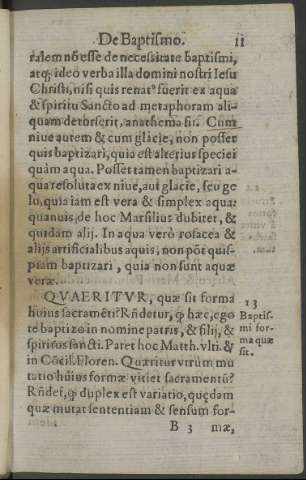 De Baptismo. 11
ralem nō esse de necessitate baptismi,
atq; ideo verba illa domini nostri Iesu
Christi, nisi quis renatꝰ fuerit ex aqua
& spiritu Sancto ad metaphoram ali-
quam detorserit, anathema sit. Cum
niue autem & cum glacie, non posset
quis baptizari, quia est alterius speciei
quàm aqua. Posset tamen baptizari a-
qua resoluta ex niue, aut glacie, seu ge
lu, quia iam est vera & simplex aqua:
quanuis de hoc Marsilius dubitet, &
quidam alij. In aqua verò rosacea &
alijs artificialibus aquis, non pōt quis-
piam baptizari, quia non sunt aquæ
veræ.
QVAERITVR, quæ sit forma
huius sacramēti? Rñdetur, ꝙ hæc, ego
te baptizo in nomine patris, & filij, &
spiritus sancti. Patet hoc Matth. vlti. &
in Cōcil. Floren. Quæritur vtrùm mu
tatio huius formæ vitiet sacramentū?
Rñdef, ꝙ duplex est variatio, quędam
quæ mutat sententiam & sensum for-
B 3 mæ,
13
Baptis-
mi for-
ma quæ
sit.